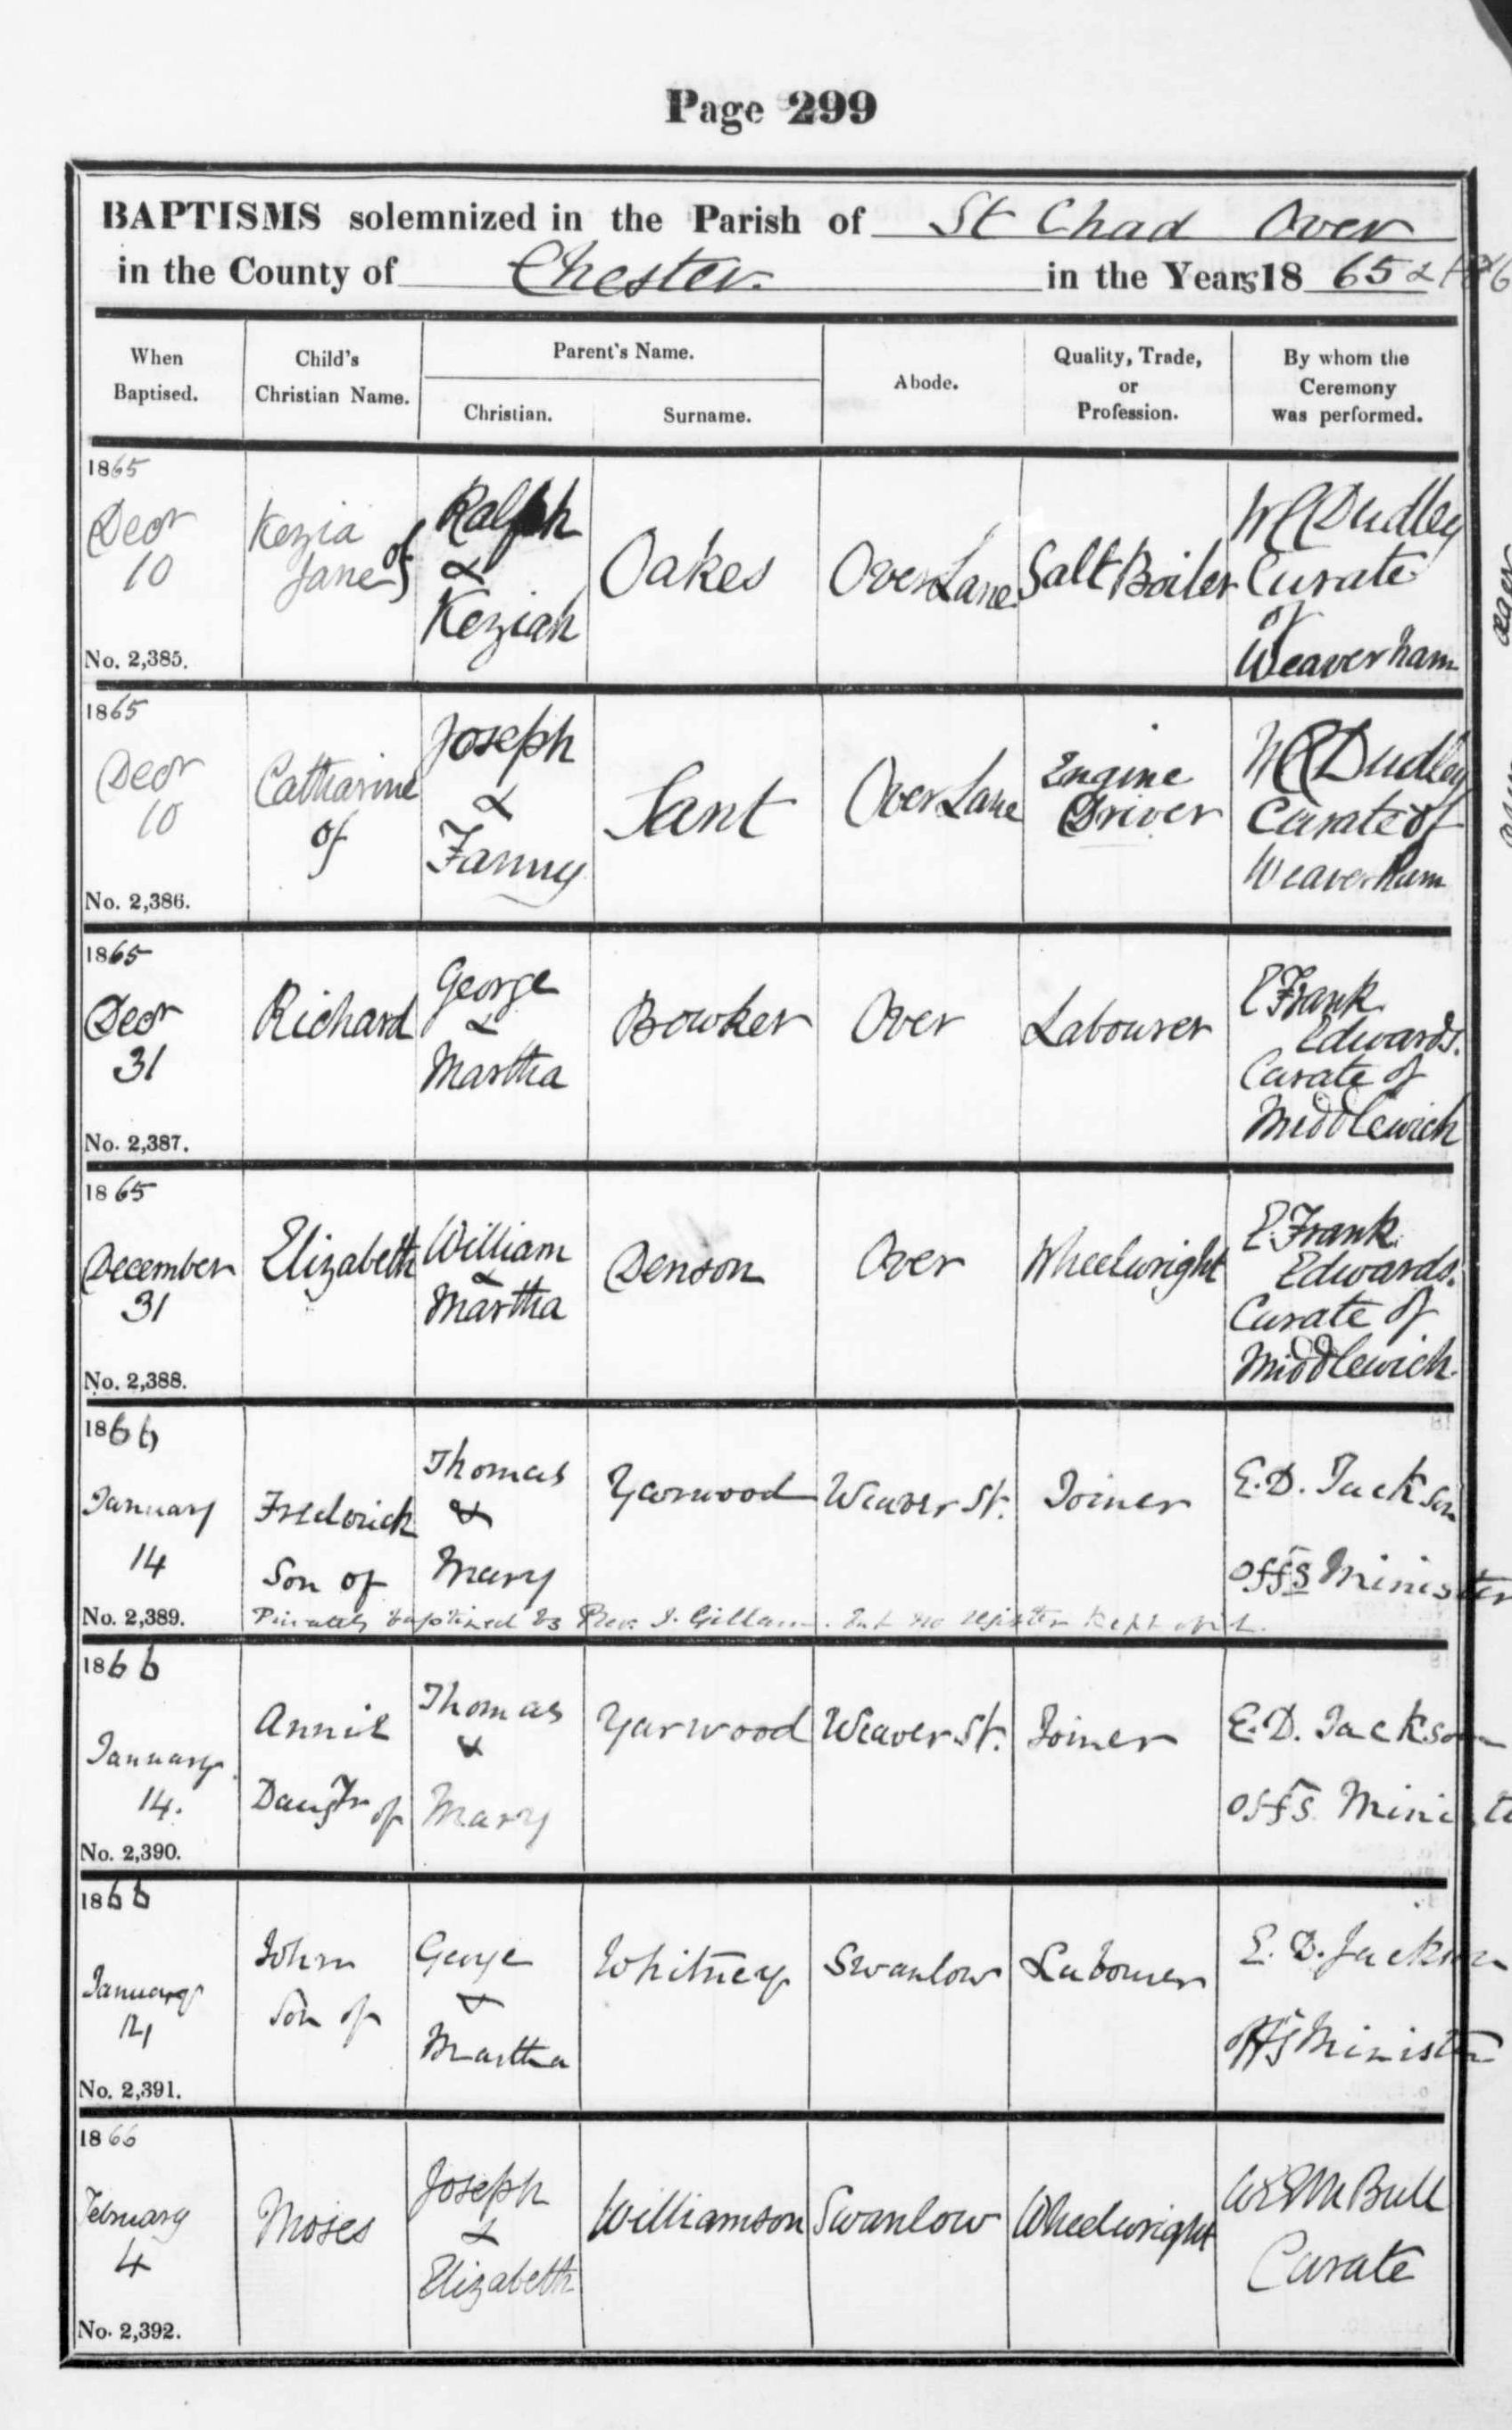 Page 299
BAPTISMS solemnized in the Parish of St Chad Over
in the County of Chester. in the Years 18 65 & 1866
When Baptised.
Child's Christian Name.
Parent's Name.
Christian.
Surname.
Abode.
Quality, Trade, or Profession.
By whom the Ceremony was performed.
1865
Decr
10
No. 2,385.
Kezia
Jane of
Ralph
&
Keziah
Oakes
Over Lane
Salt Boiler
Dudley
Curate
of
Weaverham
1865
Decr
10
No. 2,386.
Catharine
of
Joseph
&
Fanny
Sant
Over Lane
Engine
Driver
Dudley
Curate of
Weaverham
1865
Decr
31
No. 2,387.
Richard
George
&
Martha
Bowker
Over
Labourer
E Frank
Edwards.
Curate of
Middlewich
1865
December
31
No. 2,388.
Elizabeth
William
&
Martha
Denson
Over
Wheelwright
E. Frank
Edwards.
Curate of
Middlewich.
1866
January
14
No. 2,389.
Frederick
Son of
Thomas
&
Mary
Yarwood
Weaver St.
Joiner
E. D. Jackson
Offg Minister
Privately baptized by Rev. J. Gillam. but no register kept of it.
1866
January
14.
No. 2,390.
Annie
Daugtr of
Thomas
&
Mary
Yarwood
Weaver St.
Joiner
E. D. Jackson
Offg Ministe
1866
January
21
No. 2,391.
John
Son of
George
&
Martha
Whitney
Swanlow
Labourer
E. D. Jackson
Offg Minister
1866
February
4
No. 2,392.
Moses
Joseph
&
Elizabeth
Williamson
Swanlow
Wheelwright
Bull
Curate